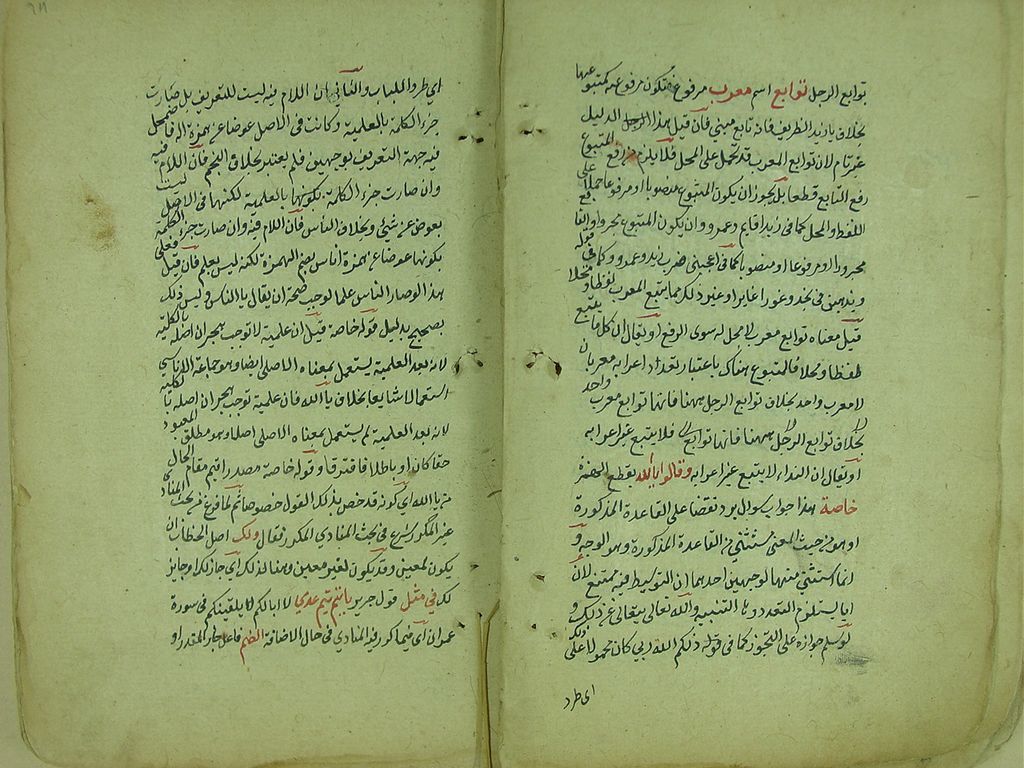 توابع الرجل توابع اسم معرب مرفوع فتكون مرفوعة كمتبوعها
بخلاف يا زيد الظريف فانه تابع مبني فان قيل هذا الدليل
غير تام لان توابع المعرب قد تحمل على المحل فلا يلزم من رفع المتبوع
رفع التابع قطعا بل يجوز ان يكون المتبوع منصوبا او مرفوعا حملا على
اللفظ والمحل كما في زيد قايم وعمرو وان يكون المتبوع مجرورا والتابع
مجرورا او مرفوعا او منصوبا كما في اعجبني ضرب زيد وعمرو وكما في قوله
ويذهبن في نجد وغورا غايرا وغير ذلك مما يتبع المعرب لفظا ومحلا
قيل معناه توابع معرب لا محل له سوى الرفع او يقال ان كل ما يتبع
لفظا ومحلا فالمتبوع هناك باعتبار تعداد اعرابه معربان
لا معرب واحد بخلاف توابع الرجل ههنا فانها توابع معرب واحد
بخلاف توابع الرجل ههنا فانها توابع فلا يتبع غير اعرابه
او يقال ان النداء لا يتبع غير اعرابه وقالوا يا الله بقطع الهمزة
خاصة هذا جواب سوال يرد نقضا على القاعدة المذكورة
او هو من حيث المعنى مستثنى من القاعدة المذكورة وهو الوجه و
انما استثنى منها لوجهين احدهما ان التوسيط فيه ممتنع لان
ايا يستلزم التعدد وها التنبيه والله تعالى يتعالى عن ذلك و
لو سلم جوازه على التجوز كما في قوله ذلكم الله ربي كان محمولا على ذلك
اي طرد
اي طرد اللباب والثاني ان اللام فيه ليست للتعريف بل صارت
جزء الكلمة بالعلمية وكانت في الاصل عوضا عن همزة اله فاضمحل
فيه جهة التعريف بوجهين فلم يعتبر بخلاف النجم فان اللام فيه
وان صارت جزء الكلمة بكونها بالعلمية لكنها في الاصل ليست
بعوض عن شيئ وبخلاف الناس فان اللام فيه وان صارت جزء الكلمة
بكونها عوضا عن همزة اناس بضم الهمزة لكنه ليس بعلم فان قيل فعلى
هذا لو صار الناس علما لوجب صحة ان يقال يا الناس وليس ذلك
بصحيح بدليل قوله خاصة قيل ان علمية لا توجب هجران اصله بالكلية
لانه بعد العلمية يستعمل بمعناه الاصلي ايضا وهو جماعة الاناسي
استعمالا شايعا بخلاف يا الله فان علمية توجب هجران اصله بالكلية
لانه بعد العلمية لم يستعمل بمعناه الاصلي اصلا وهو مطلق المعبود
حقا كان او باطلا فافترقا وقوله خاصة مصدر اقيم مقام الحال
من يا الله اي كونه قد خص بذلك القول خصوصا ثم لما فرغ من بحث المنادى
غير المكرر شرع في بحث المنادي المكرر فقال ولك اصل الخطاب ان
يكون لمعين وقد يكون لغير معين وههنا لذلك اي جاز لك او جايز
لك في مثل قول جرير يا تيم تيم عدي لا ابا لكم لا يلقينكم في سورة
عمر اي فيما كرر فيه المنادي في حال الاضافة الضم فاعل جاز المقدر او